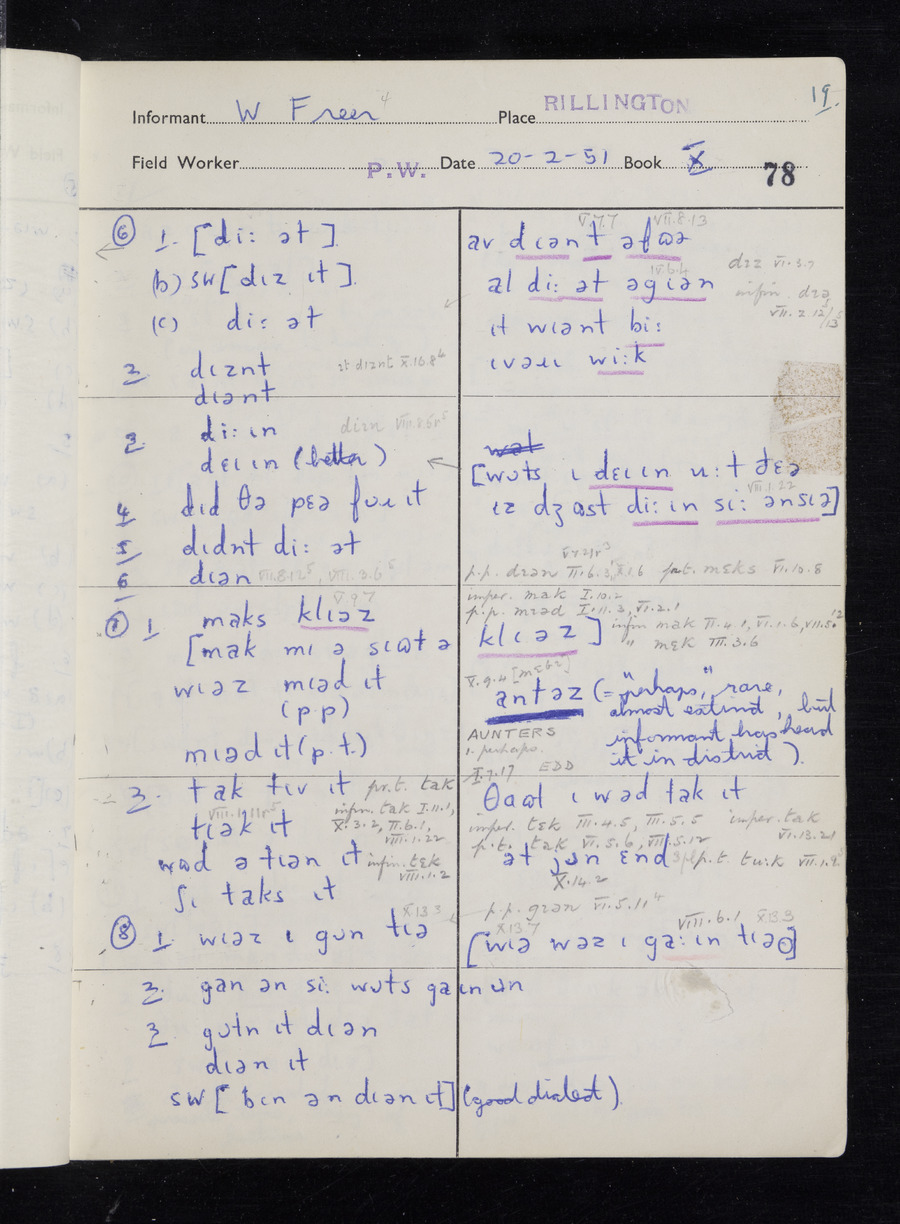 19.
Informant W Freer 4 Place RILLINGTON
Field Worker P.W. Date 20-2-51 Book X 78
⑥ 1. [di: ət].
(b) SW [dɪz ɪt].
(c) di: ət
2. dɪznt ɪt dɪənt X.16.8
dɪənt
3. di: ɪn
deɪɪn (better)
4. dɪd θə pɛə fʊʊ ɪt
5. dɪdnt di: ət
6 dɪən
⑦ 1 maks klɪəz
[mak mɪ ə sɪʊt ə
wɪəz mɪəd ɪt
(p p)
mɪəd ɪt (p.t.)
2. tak tɪv ɪt pr.t. tak
tɪək ɪt infin. tak I.11.1,
X.3.2, II.6.1,
VIII.1.22
wəd ə tɪən ɪt infin. tɛk
VIII.1.2
ʃɪ taks ɪt
⑧ 1. wɪəz ɪ gʊn tɪə X.13.3
2. gan ən si: wʊts ga ɪn ʊn
3. gʊtn ɪt dɪən
dɪən ɪt
SW [bɪn ən dɪən ɪt] (good dialect).
V.7.7 VII.8.13
av dɪən t əfʊə
IV.6.4
al di: ət əgɪən
infin. dɪə
VII.2.12/13
ɪt wɪənt bi:
wi:k
[wʊts ɪ deɪɪn u:t ðɛə
VIII.1.22
ɪz dʒʊst di: ɪn si: ənsɪə]
p.p. dɪən II.6.3, X.1.6 p.t. mɛks VI.10.8
imper. mak I.10.2
p.p. mɪəd I.11.3, VI.2.1
klɪəz] infin mak II.4.1, VI.1.6, VII.5.12
" mɛk III.3.6
X.9.4
antəz (= "perhaps," rare,
almost extinct, but
informant has heard
it in district).
AUNTERS
1. perhaps.
I.7.17 EDD
θaʊl ɪ wəd tak ɪt
imper. tɛk III.4.5, III.5.5 imper. tak
VI.13.21
p.t. tak VI.5.6, VIII.5.12
ət jʊn ɛnd p.t. tu:k VII.1.9
X.14.2
p.p. gɪən VI.5.11
X.13.7 VIII.6.1 X.13.3
[wɪə wəz ɪ ga: ɪn tɪə]